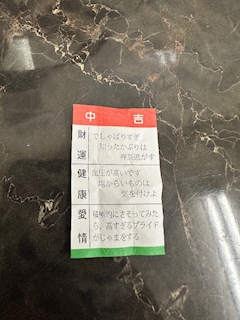 中吉
財運
でしゃばりすぎ
知ったかぶりは
福は逃がす
健康
血圧が高いです
塩からいものは
気を付けよ
愛情
積極的にさそってみた
ら、高すぎるプライド
がじゃまをする